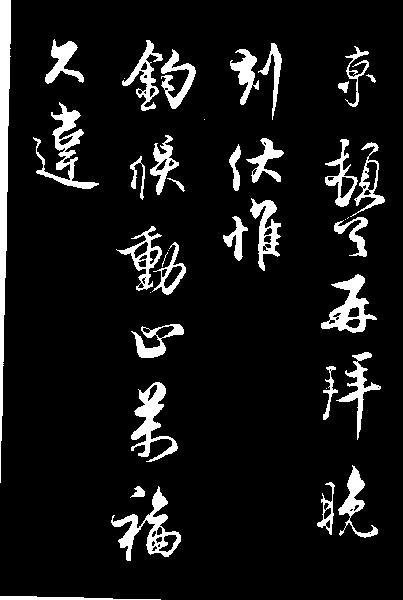 京頓首再拜晚
刻伏惟
鈞候動止萬福
久違